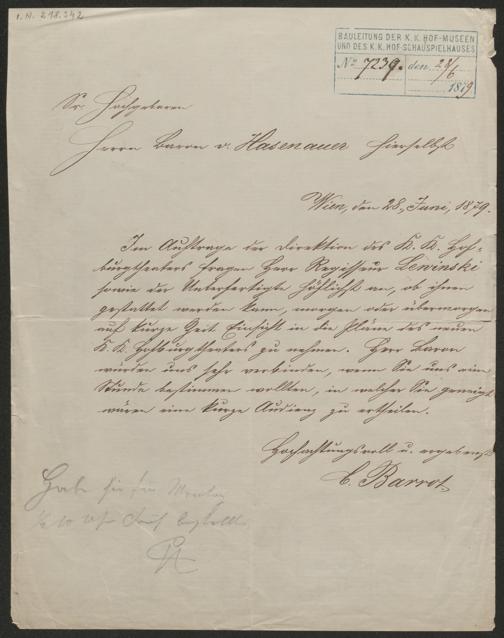 I.N. 218.342
BAULEITUNG DER K. K. HOF-MUSEEN
UND DES K. K. HOF-SCHAUSPIELHAUSES
No 7239. den 28/6
1879
Sr. Hochgeboren
Herrn Baron v. Hasenauer hierselbst
Wien, den 28. Juni, 1879.
Im Auftrage der Direktion des K. K. Hof-
burgtheaters fragen Herr Regisseur Lewinski
sowie der Unterfertigte höflichst an, ob ihnen
gestattet werden kann, morgen oder übermorgen
auf kurze Zeit Einsicht in die Pläne des neuen
K. K. Hofburgtheaters zu nehmen. Herr Baron
würden uns sehr verbinden, wenn Sie uns eine
Stunde bestimmen wollten, in welcher Sie geneigt
wären eine kurze Audienz zu ertheilen.
Hochachtungsvoll u. ergebenst
C. Barrot
Habe sie für Montag
1/2 10 Uhr